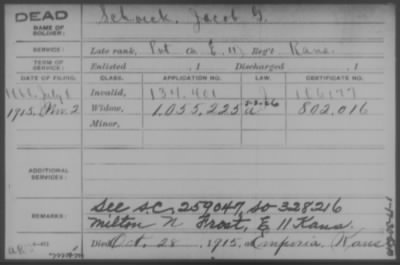 DEAD
NAME OF SOLDIER: Schock, Jacob G.
SERVICE: Late rank, Pvt Co E, 11 Reg't Kans.
TERM OF SERVICE: Enlisted , 1 Discharged , 1
DATE OF FILING. CLASS. APPLICATION NO. LAW. CERTIFICATE NO.
July 1 Invalid, 134,401
1915, Nov. 2 Widow, 1,055,225 802,016
Minor,
ADDITIONAL SERVICES:
REMARKS: See S.C. 259047, SO 328216
Milton N Frost, E 11 Kans.
Died Oct. 28, 1915, at Emporia, Kans